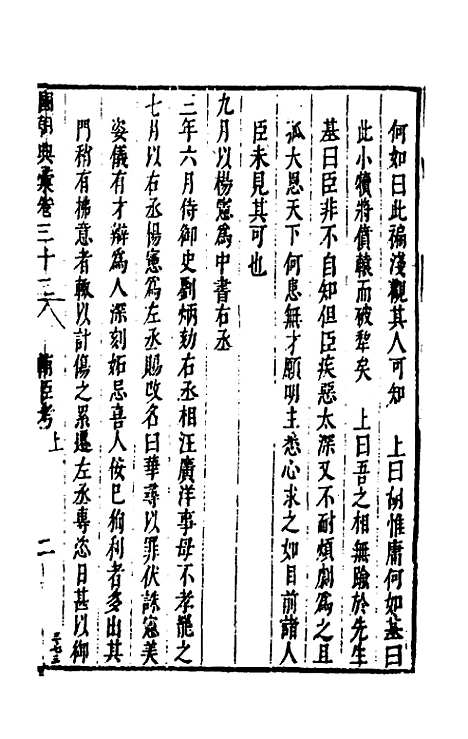 何如曰此褊淺觀其人可知　上曰胡惟庸何如基曰
此小犢將僨轅而破犁矣　上曰吾之相無踰於先生
基曰臣非不自知但臣疾惡太深又不耐煩劇爲之且
孤大恩天下何患無才願明主悉心求之如目前諸人
臣未見其可也
九月以楊憲爲中書右丞
三年六月侍御史劉炳劾右丞相汪廣洋事母不孝罷之
七月以右丞楊憲爲左丞賜改名曰華尋以罪伏誅憲美
姿儀有才辯爲人深刻妬忌喜人佞已徇利者多出其
門稍有拂意者輙以計傷之累遷左丞專恣日甚以御
國朝典彙卷三十三　輔臣考上　二